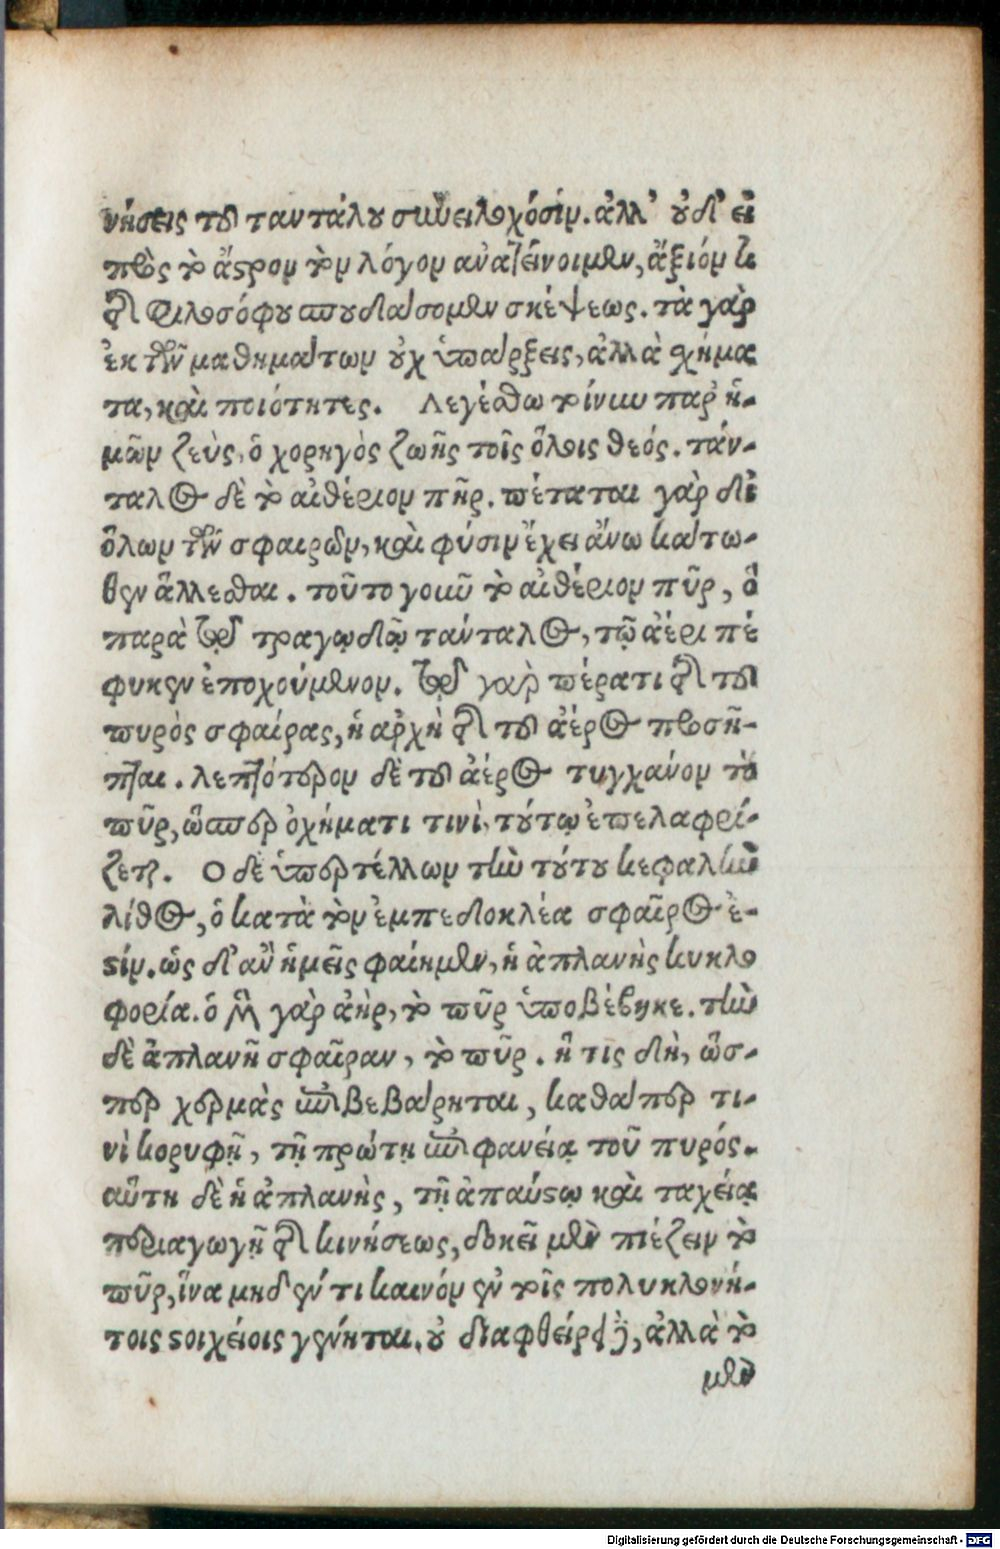 νήσεις τοῦ ταντάλου συνειλοχόσιν. ἀλλ' οὐδ' εἰ
πρὸς τὸ ἄστρον τὸν λόγον ἀνατείνοιμεν, ἄξιόν τι
τῆς φιλοσόφου σπουδάσομεν σκέψεως. τὰ γὰρ
ἐκ τῶν μαθημάτων οὐχ ὑπάρξεις, ἀλλὰ σχήμα
τα, καὶ ποιότητες. Λεγέσθω τοίνυν παρ' ἡ-
μῶν ζεὺς, ὁ χορηγὸς ζωῆς τοῖς ὅλοις θεός. τάν-
ταλος δὲ τὸ αἰθέριον πῆρ. πέταται γὰρ δι'
ὅλων τῶν σφαιρῶν, καὶ φύσιν ἔχει ἄνω κάτω-
θεν ἅλλεσθαι. τοῦτο γοιῦ τὸ αἰθέριον πῦρ, ὃ
παρὰ τῷ τραγῳδῷ τάνταλος, τῷ ἀέρι πέ
φυκεν ἐποχούμενον. τῷ γὰρ πέρατι τῆς τοῦ
πυρὸς σφαίρας, ἡ ἀρχὴ τῆς τοῦ ἀέρος προσῆ-
πται. λεπτότερον δὲ τοῦ ἀέρος τυγχάνον τὸ
πῦρ, ὥσπερ ὀχήματι τινὶ, τούτῳ ἐπελαφρί-
ζεται. Ο δὲ ὑπερτέλλων τὴν τούτου κεφαλὴν
λίθος, ὁ κατὰ τὸν ἐμπεδοκλέα σφαῖρος ἐ-
στίν. ὡς δ' ἂν ἡμεῖς φαίημεν, ἡ ἀπλανὴς κυκλο
φορία. ὁ μὲν γὰρ ἀὴρ, τὸ πῦρ ὑποβέβηκε. τὴν
δὲ ἀπλανῆ σφαῖραν, τὸ πῦρ. ἥ τις δὴ, ὥσ-
περ χερμὰς ἐπιβεβάρηται, καθάπερ τι-
νὶ κορυφῇ, τῇ πρώτῃ ἐπιφανείᾳ τοῦ πυρός.
αὕτη δὲ ἡ ἀπλανὴς, τῇ ἀπαύστῳ καὶ ταχείᾳ
περιαγωγῇ τῆς κινήσεως, δοκεῖ μὲν πιέζειν τὸ
πῦρ, ἵνα μηδέν τι καινόν ἐν τοῖς πολυκλονή-
τοις στοιχείοις γένηται. οὐ διαφθείρει δὲ, ἀλλὰ τὸ
μὲν
Digitalisierung gefördert durch die Deutsche Forschungsgemeinschaft - DFG